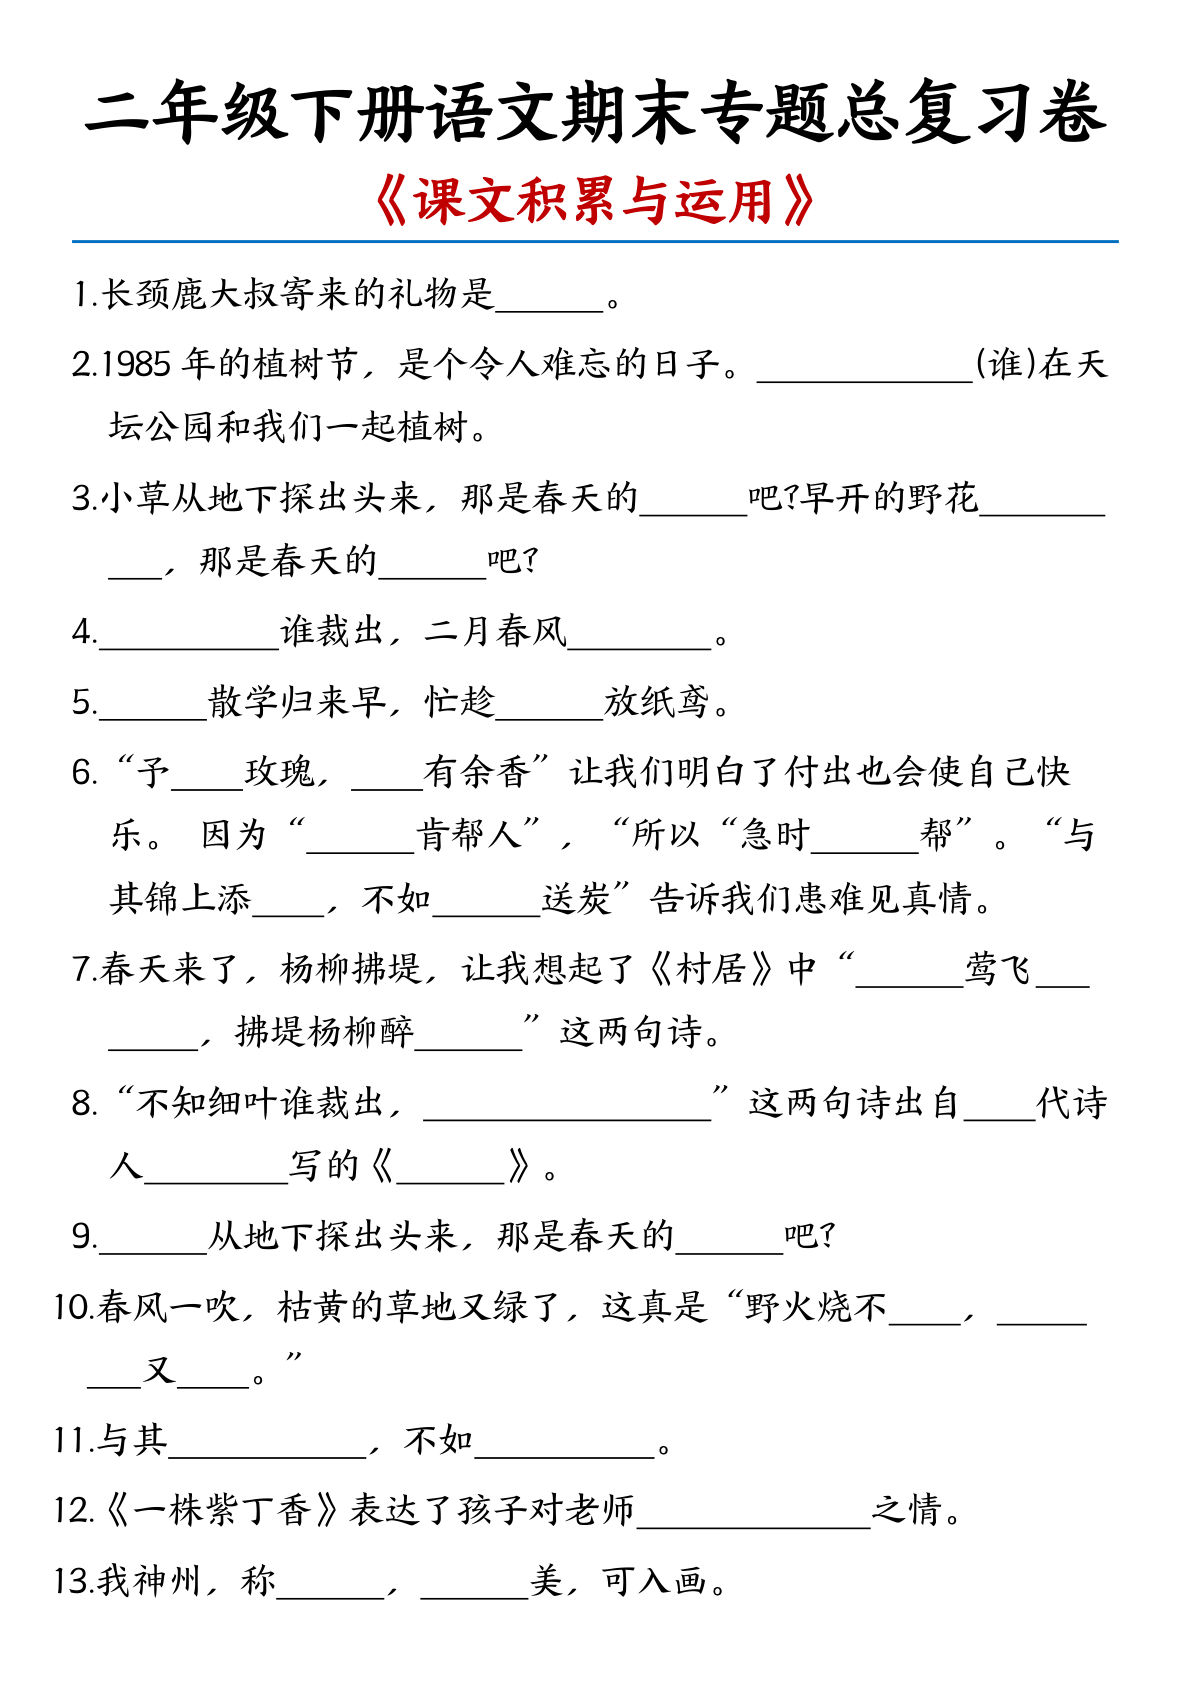 二年级下册语文期末专题总复习卷
《课文积累与运用》
1.长颈鹿大叔寄来的礼物是______。
2.1985 年的植树节，是个令人难忘的日子。____________(谁)在天
坛公园和我们一起植树。
3.小草从地下探出头来，那是春天的______吧?早开的野花_______
___，那是春天的______吧?
4.__________谁裁出，二月春风________。
5.______散学归来早，忙趁______放纸鸢。
6.“予____玫瑰，____有余香”让我们明白了付出也会使自己快
乐。 因为“______肯帮人”，“所以“急时______帮”。“与
其锦上添____，不如______送炭”告诉我们患难见真情。
7.春天来了，杨柳拂堤，让我想起了《村居》中“______莺飞___
_____，拂堤杨柳醉______”这两句诗。
8.“不知细叶谁裁出，________________”这两句诗出自____代诗
人________写的《______》。
9.______从地下探出头来，那是春天的______吧?
10.春风一吹，枯黄的草地又绿了，这真是“野火烧不____，_____
___又____。”
11.与其___________，不如__________。
12.《一株紫丁香》表达了孩子对老师_____________之情。
13.我神州，称______，______美，可入画。